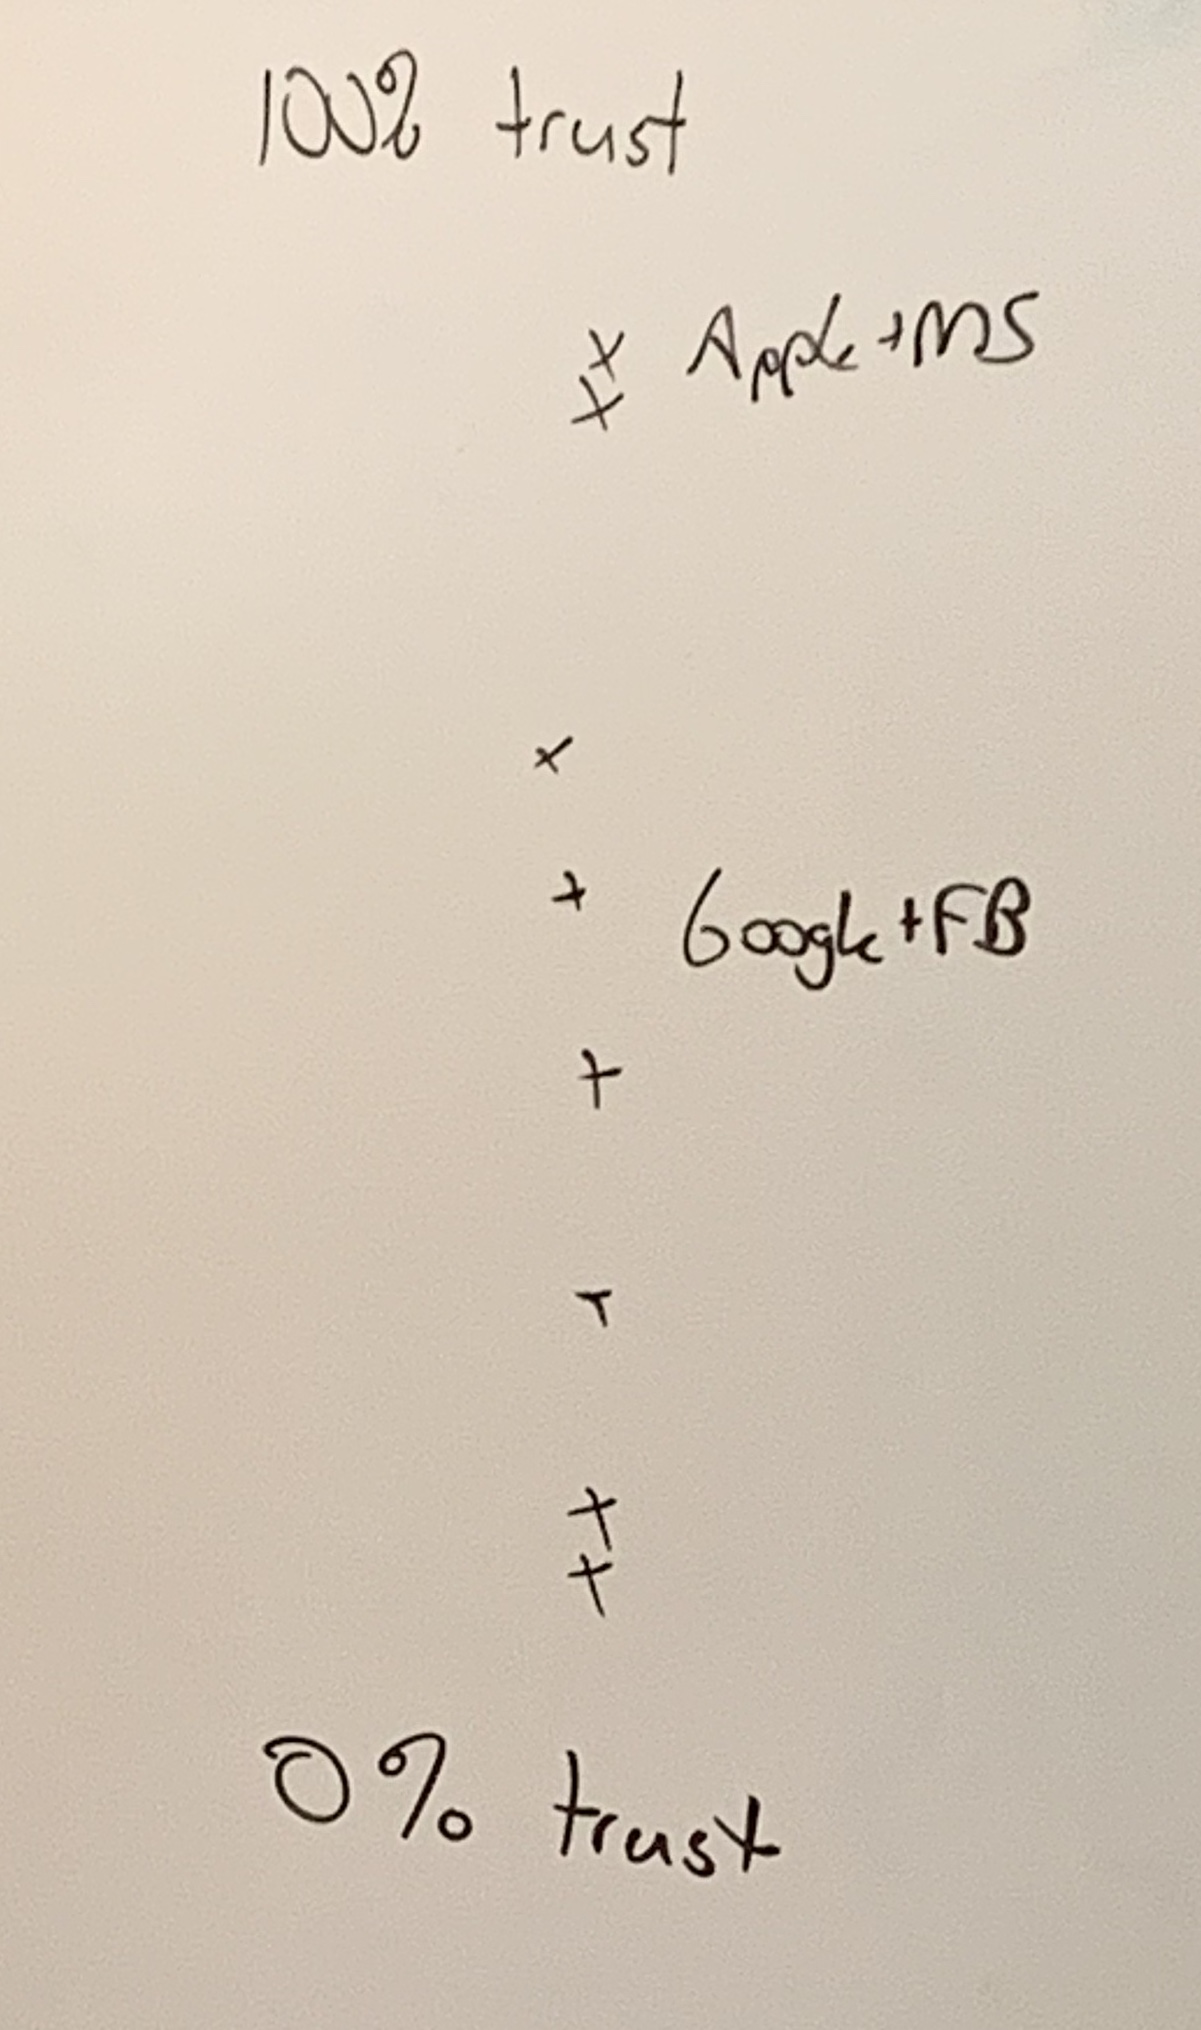 100% trust
x Apple + MS
x
x
+ Google + FB
+
+
+
+
0% trust